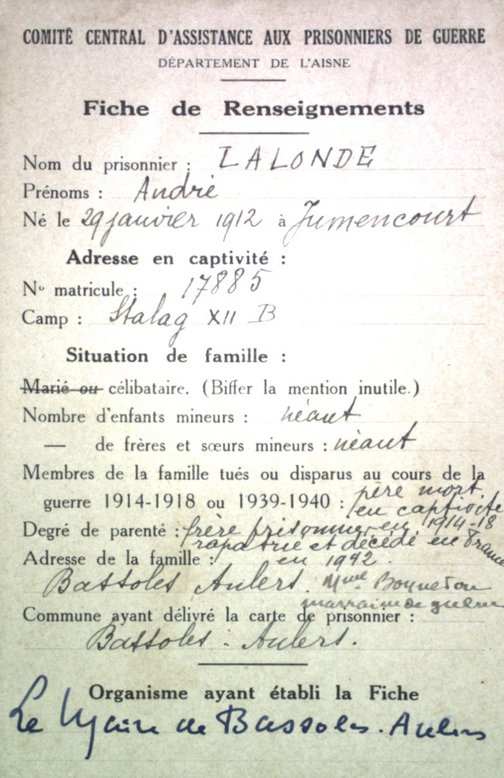 COMITÉ CENTRAL D'ASSISTANCE AUX PRISONNIERS DE GUERRE
DÉPARTEMENT DE L'AISNE
Fiche de Renseignements
Nom du prisonnier : LALONDE
Prénoms : André
Né le 29 janvier 1912 à Jumencourt
Adresse en captivité :
No matricule : 17885
Camp : Stalag XII B
Situation de famille :
Marié ou célibataire. (Biffer la mention inutile.)
Nombre d'enfants mineurs : néant
— de frères et sœurs mineurs : néant
Membres de la famille tués ou disparus au cours de la
guerre 1914-1918 ou 1939-1940 : père mort
en captivité
Degré de parenté : frère prisonnier en 1914-18
rapatrié et décédé en France
Adresse de la famille : en 1942
Bassoles Aulers. Mme Bonneton
marraine de guerre
Commune ayant délivré la carte de prisonnier :
Bassoles - Aulers.
Organisme ayant établi la Fiche
Le Maire de Bassoles-Aulers